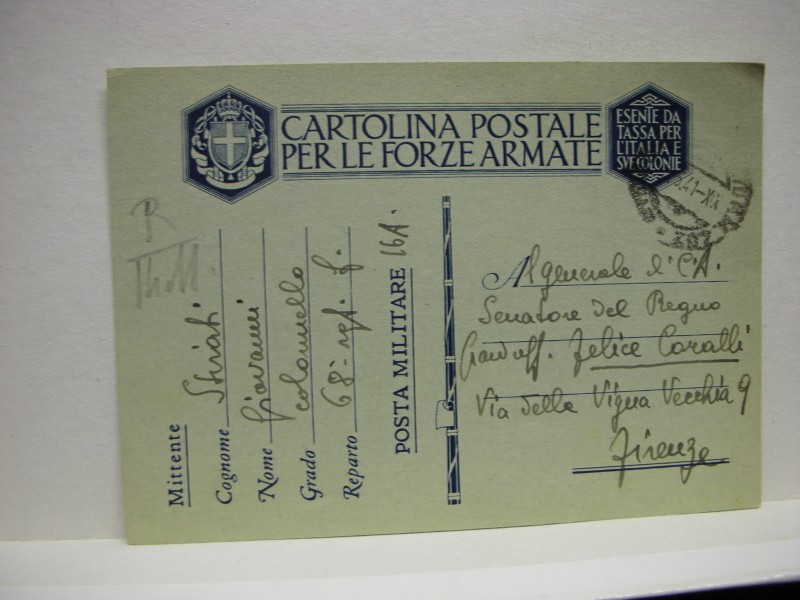 CARTOLINA POSTALE
PER LE FORZE ARMATE
ESENTE DA
TASSA PER
L'ITALIA E
SVE COLONIE
41-XIX
Mittente
Cognome
Nome Giovanni
Grado colonnello
Reparto 68° rgt. f.
POSTA MILITARE 16A.
Al generale d'C.A.
Senatore del Regno
Grand'uff. Felice Coralli
Via della Vigna Vecchia 9
Firenze